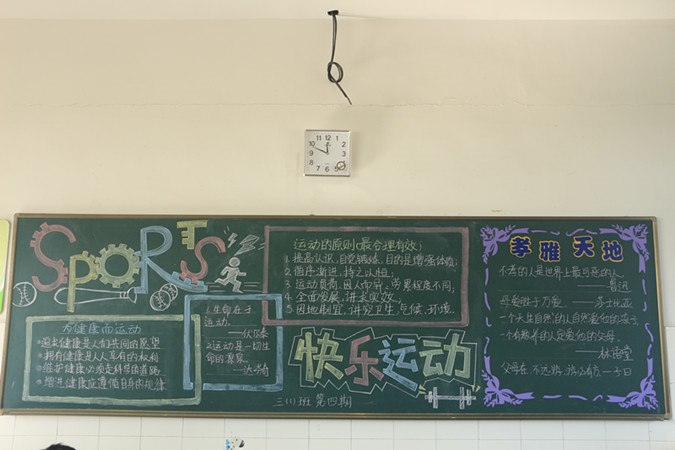 SPORTS
为健康而运动
追求健康是人们共同的愿望
拥有健康是人人享有的权利
维护健康必须走科学的道路
增进健康应遵循自身的规律
1.生命在于
运动。
2.运动是一切生
命的源泉
——达·芬奇
运动的原则(最合理有效):
1.提高认识,自觉锻炼,目的是增强体质;
2.循序渐进,持之以恒;
3.运动负荷,因人而异,
4.全面发展,讲求实效;
5.因地制宜,讲究卫生,气候、环境.
快乐运动
三(1)班 第四期
孝雅天地
不孝的人是世界上最可恶的人.
母爱胜于万爱 ——莎士比亚
一个有教养的人定爱他的父母
——林语堂
父母在 不远游,游必有方
12
1
2
3
5
6
7
8
9
10
11